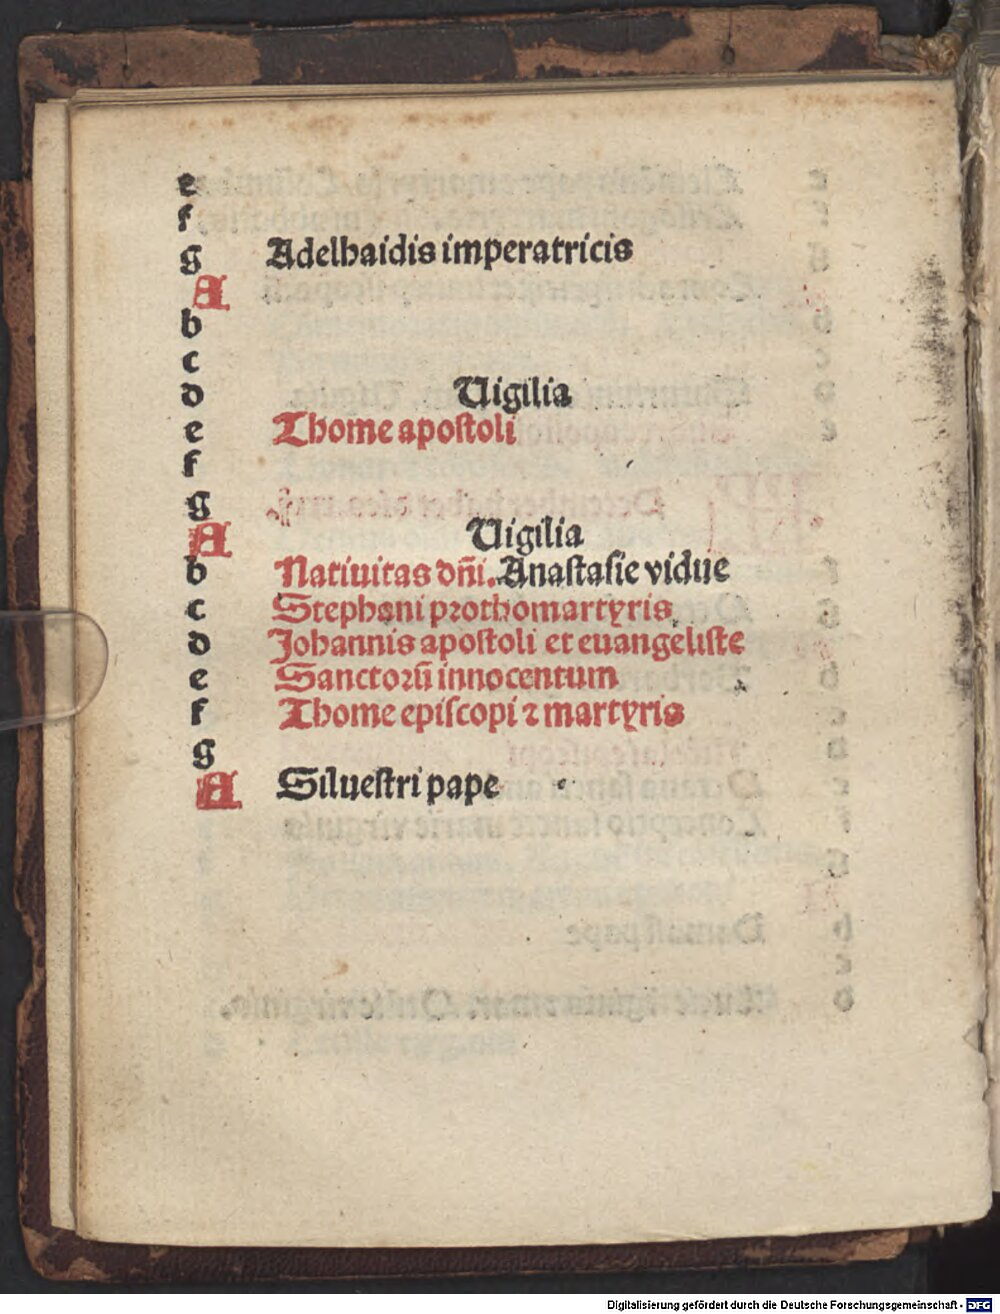 e
f
g Adelhaidis imperatricis
A
b
c
d Uigilia
e Thome apostoli
f
g
A Uigilia
b Natiuitas dñi. Anastasie vidue
c Stephani prothomartyris
d Johannis apostoli et euangeliste
e Sanctorũ innocentum
f Thome episcopi ⁊ martyris
g
A Siluestri pape
Digitalisierung gefördert durch die Deutsche Forschungsgemeinschaft - DFG